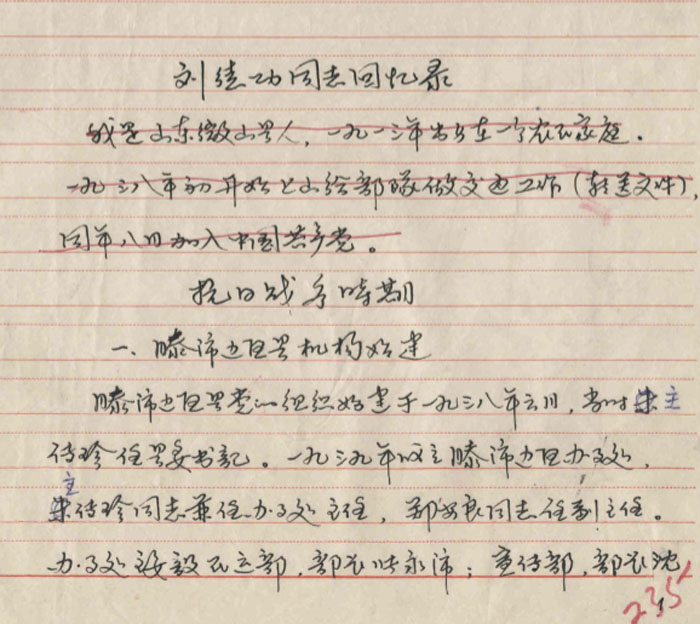 刘德功同志回忆录
我是山东微山县人，一九一三年出生在一个农民家庭．
一九三八年初开始上山给部隊做交通工作（转送文件），
同年八月加入中国共产党。
抗日战争時期
一、滕沛边区县机构始建
滕沛边区县党的组织始建于一九三八年六月，当时朱主
传珍任县委书记。一九三九年成立滕沛边区办事处，
主
朱传珍同志兼任办事处主任，郑安良同志任副主任。
办事处设民运部，部长 永沛；宣传部，部长沈
235